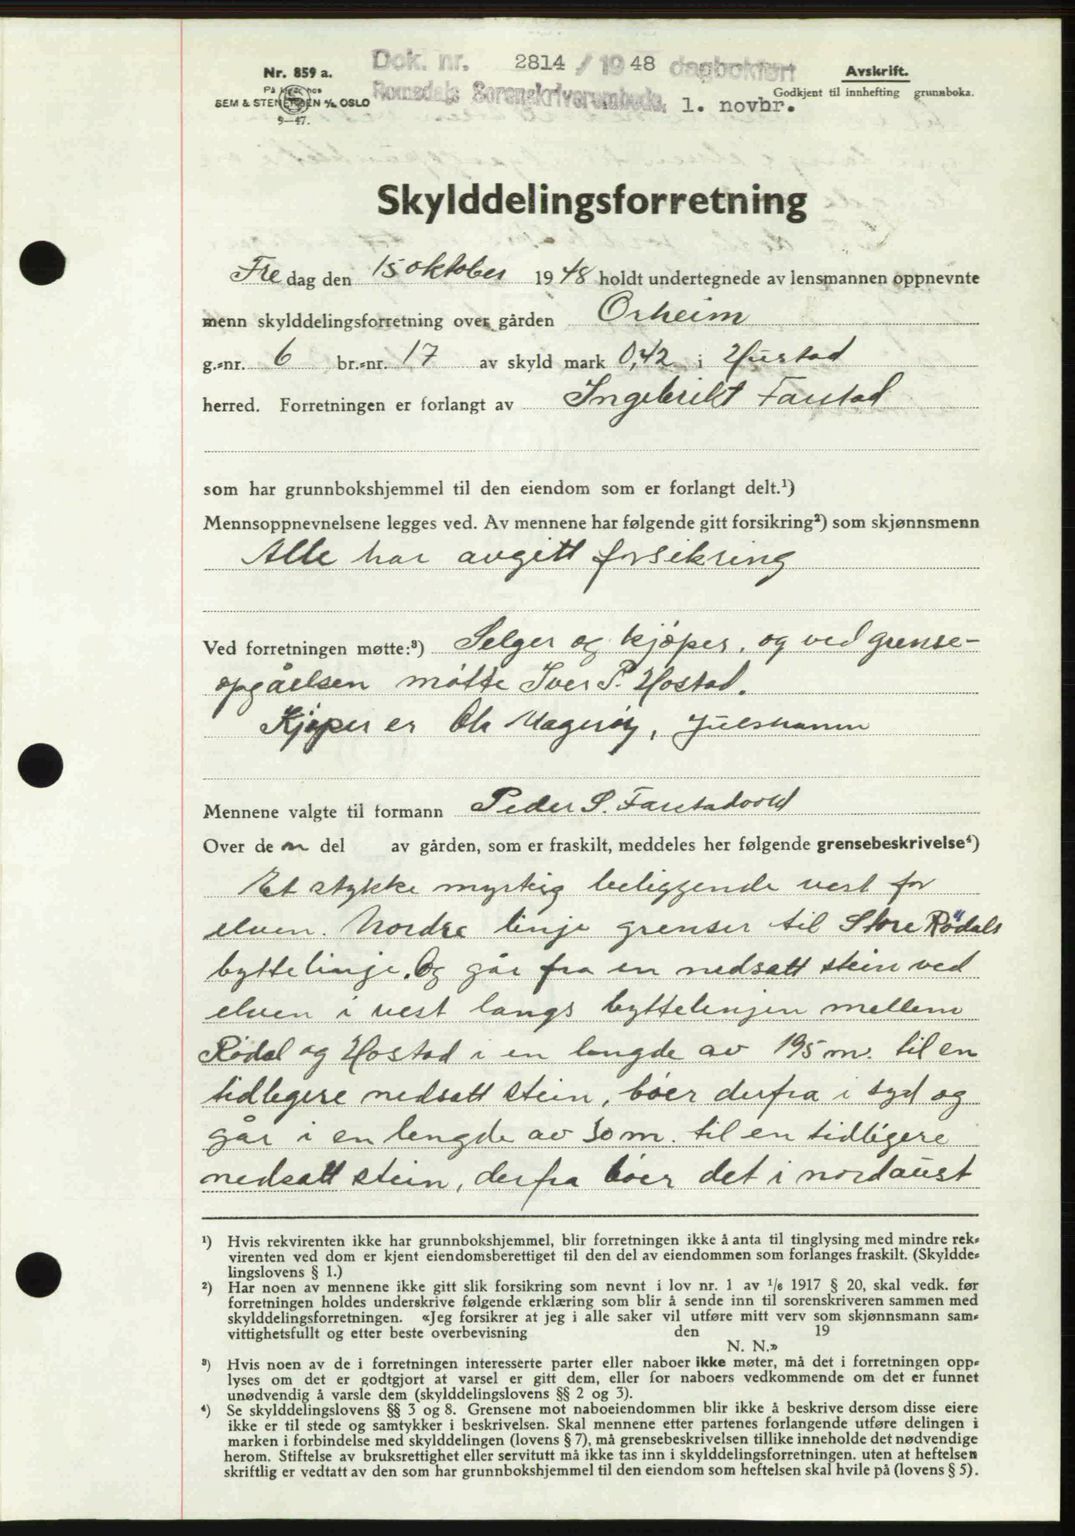 Nr. 859 a.
Dok. nr. 2814 / 1948 dagbokført
Avskrift.
SEM & STENERSEN A/S OSLO
Romsdals Sorenskriverembede, 1. novbr.
Godkjent til innhefting i grunnboka.
9—47.
Skylddelingsforretning
Fredag den 15 oktober 1948 holdt undertegnede av lensmannen oppnevnte
menn skylddelingsforretning over gården Orheim
g.-nr. 6 br.-nr. 17 av skyld mark 0,42 i Hustad
herred. Forretningen er forlangt av Ingebrikt Farstad
som har grunnbokshjemmel til den eiendom som er forlangt delt.¹)
Mennsoppnevnelsene legges ved. Av mennene har følgende gitt forsikring²) som skjønnsmenn
Alle har avgitt forsikring
Ved forretningen møtte:³) Selger og kjøper, og ved grense-
opgåelsen møtte Iver P. Hostad.
Kjøper er Ole Magerøy, Julshamn
Mennene valgte til formann Peder S. Farstadvold
Over den del av gården, som er fraskilt, meddeles her følgende grensebeskrivelse⁴)
Et stykke myrteig beliggende vest for
elven. Nordre linje grenser til Store Rødals
byttelinje. Og går fra en nedsatt stein ved
elven i vest langs byttelinjen mellem
Rødal og Hostad i en lengde av 195 m. til en
tidligere nedsatt stein, bøer derfra i syd og
går i en lengde av 30 m. til en tidligere
nedsatt stein, derfra bøer det i nordaust
¹) Hvis rekvirenten ikke har grunnbokshjemmel, blir forretningen ikke å anta til tinglysing med mindre rek-
virenten ved dom er kjent eiendomsberettiget til den del av eiendommen som forlanges fraskilt. (Skyldde-
lingslovens § 1.)
²) Har noen av mennene ikke gitt slik forsikring som nevnt i lov nr. 1 av 1/6 1917 § 20, skal vedk. før
forretningen holdes underskrive følgende erklæring som blir å sende inn til sorenskriveren sammen med
skylddelingsforretningen. «Jeg forsikrer at jeg i alle saker vil utføre mitt verv som skjønnsmann sam-
vittighetsfullt og etter beste overbevisning den 19
N. N.»
³) Hvis noen av de i forretningen interesserte parter eller naboer ikke møter, må det i forretningen opp-
lyses om det er godtgjort at varsel er gitt dem, eller for naboers vedkommende om det er funnet
unødvendig å varsle dem (skylddelingslovens §§ 2 og 3).
⁴) Se skylddelingslovens §§ 3 og 8. Grensene mot naboeiendommen blir ikke å beskrive dersom disse eiere
ikke er til stede og samtykker i beskrivelsen. Skal mennene etter partenes forlangende utføre delingen i
marken i forbindelse med skylddelingen (lovens § 7), må grensebeskrivelsen tillike inneholde det nødvendige
herom. Stiftelse av bruksrettighet eller servitutt må ikke tas inn i skylddelingsforretningen, uten at heftelsen
skriftlig er vedtatt av den som har grunnbokshjemmel til den eiendom som heftelsen skal hvile på (lovens § 5).